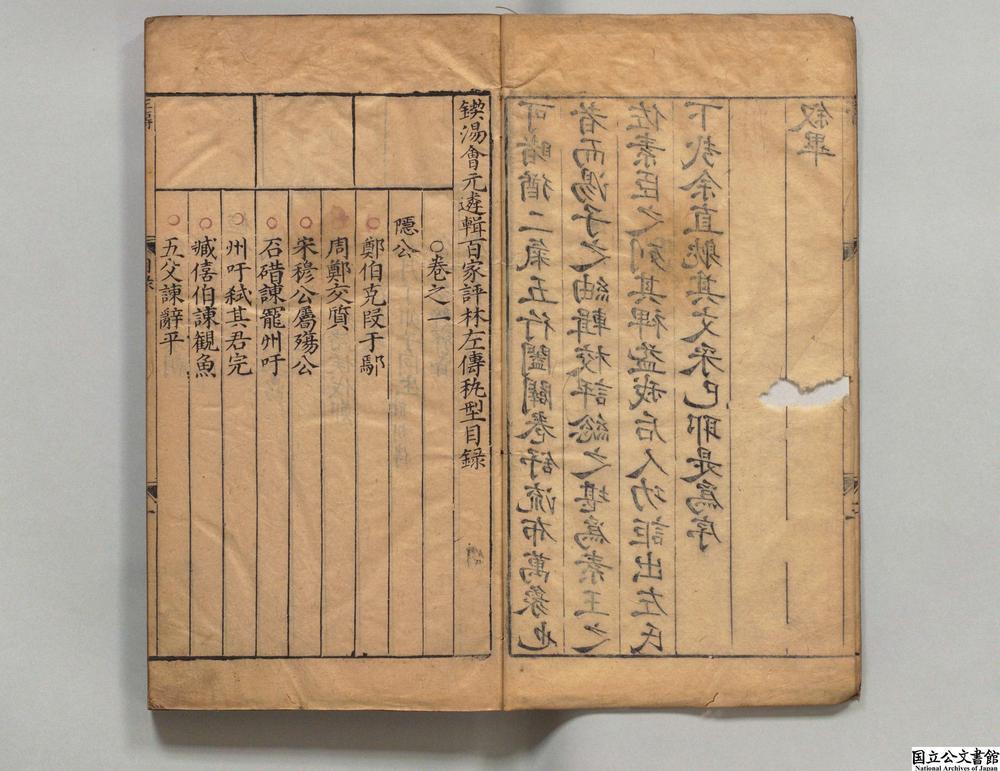 可睹猶二氣五行闔闢卷舒流布萬象也
者而湯子之紬輯校評総之堪為素王之
佐素臣之列其裨益我后人功詎出左氏
下哉余直躭其文采已耶是為序
叙畢
鍥湯會元遴輯百家評林左傳秇型目録
○卷之一
隱公
○鄭伯克段于鄢
周鄭交質
○宋穆公屬殤公
○石碏諫寵州吁
○州吁弑其君完
○臧僖伯諫観魚
○五父諫辭平
目録
国立公文書館
National Archives of Japan